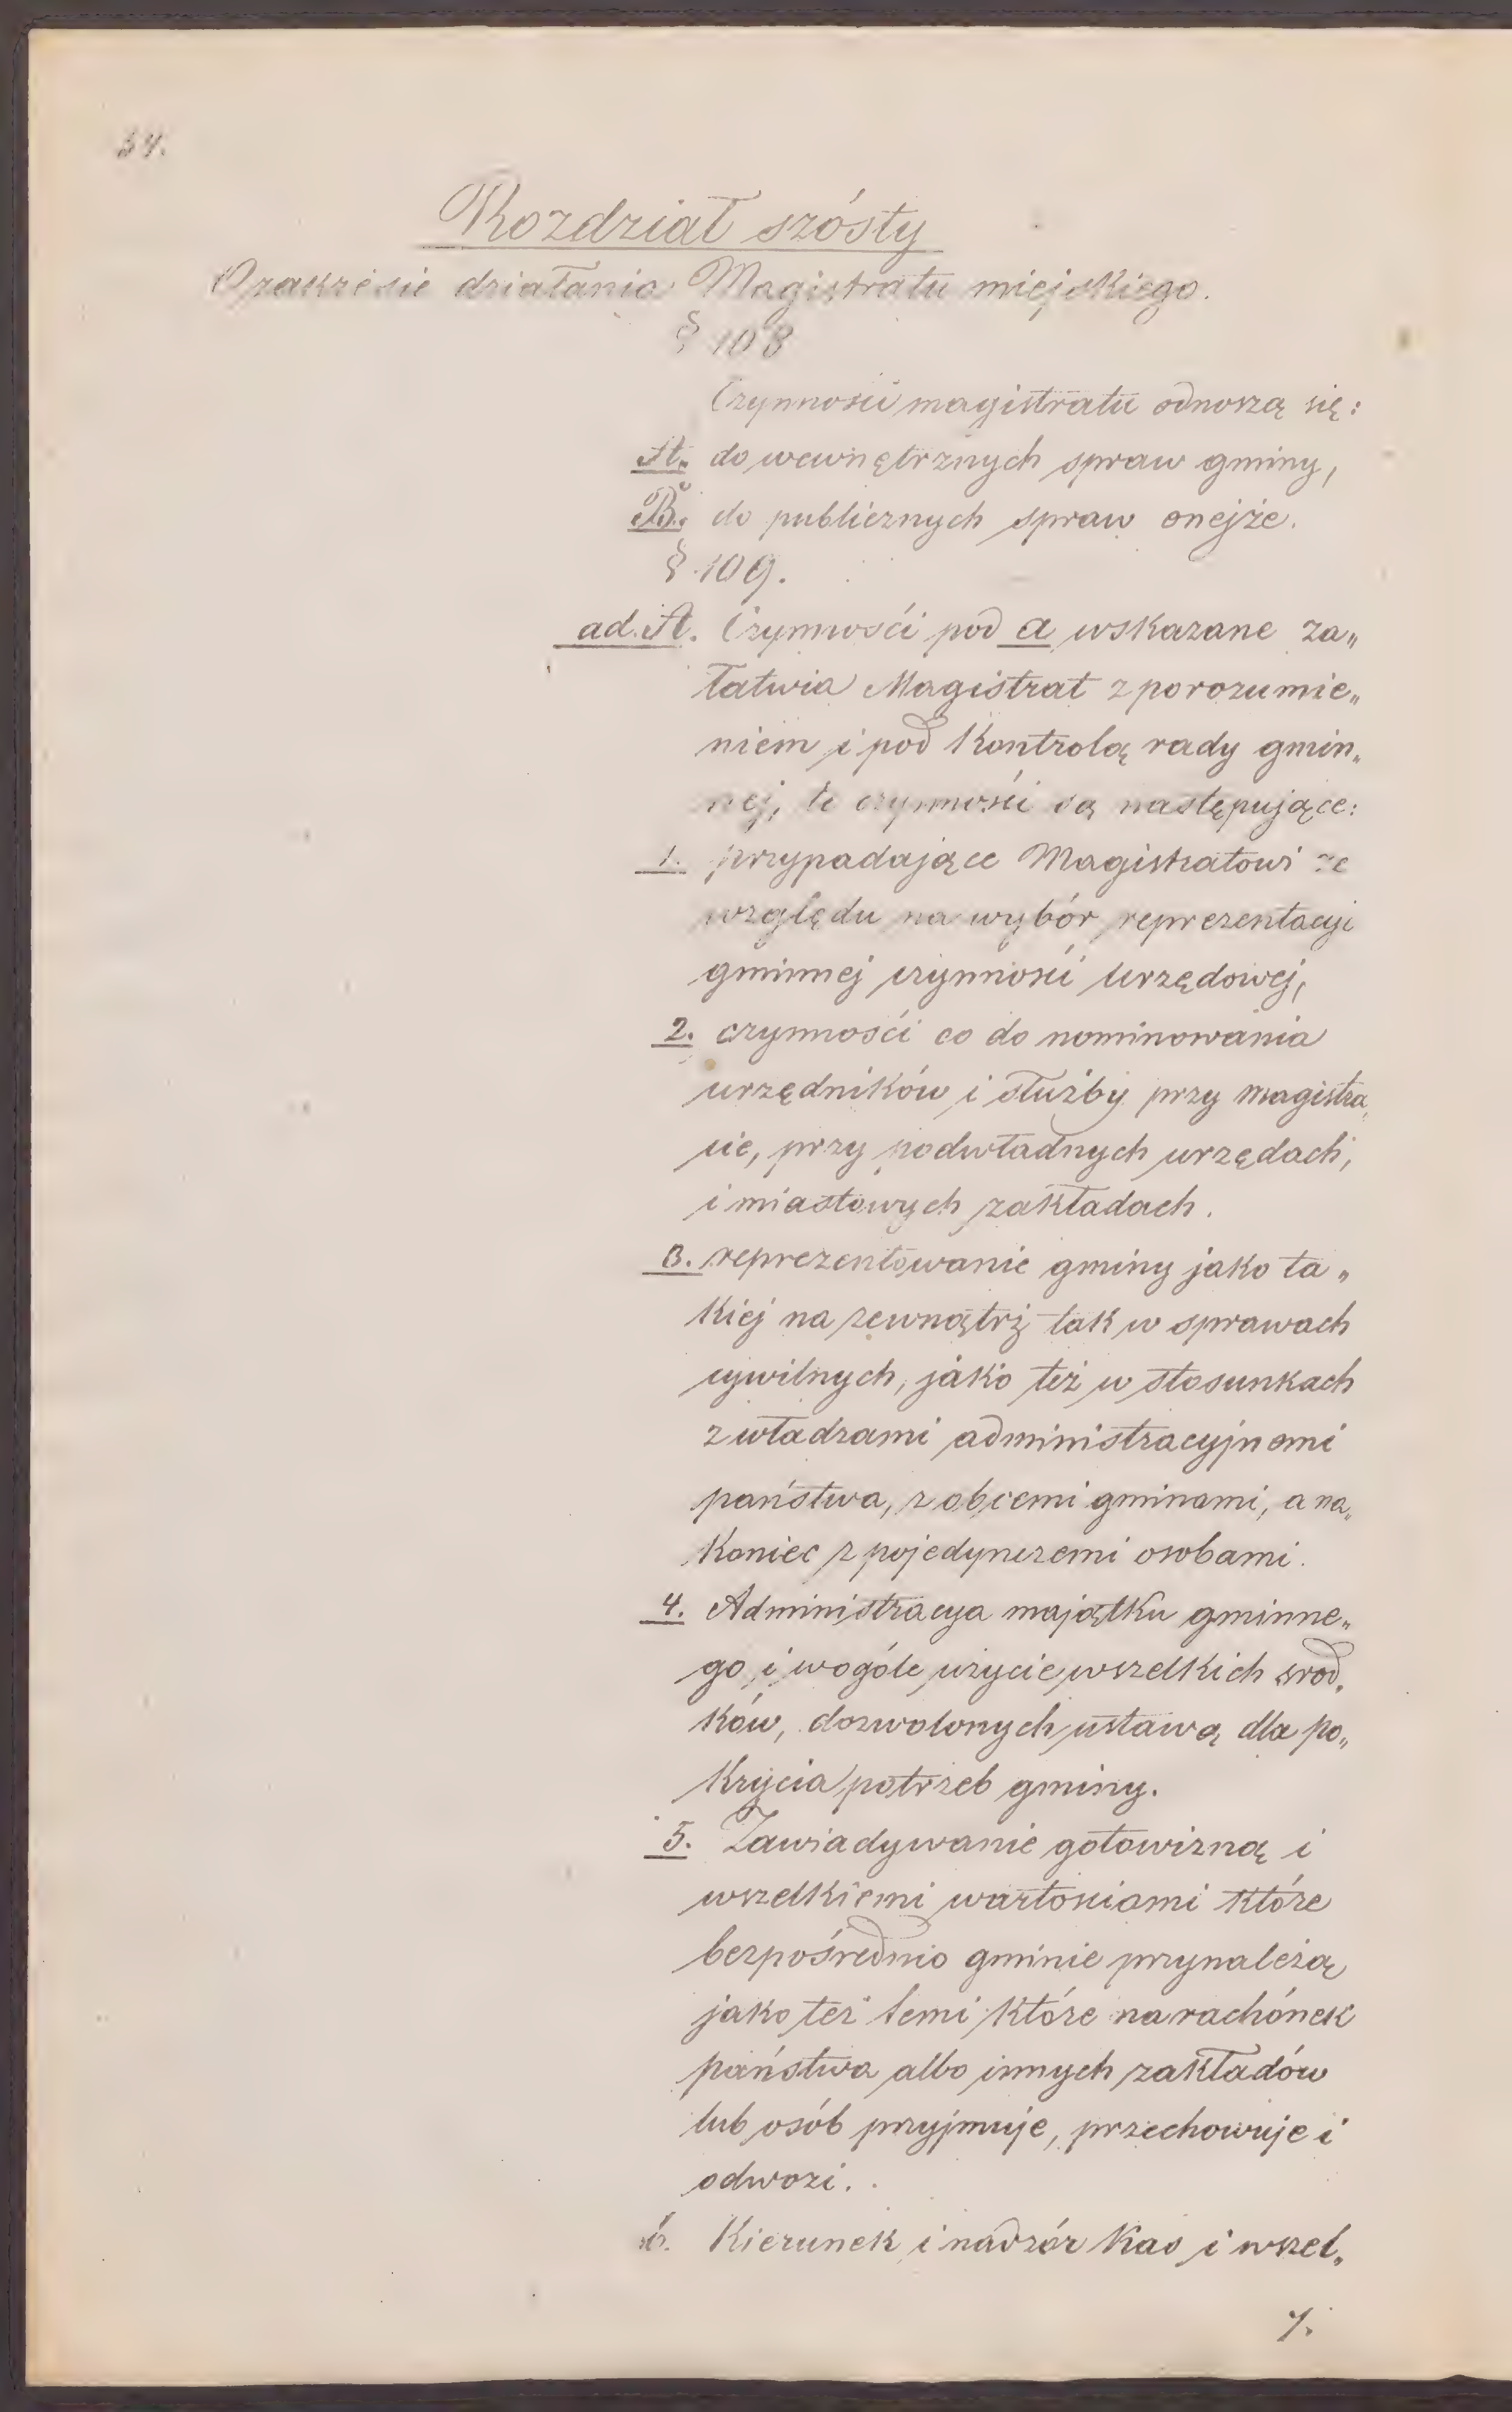 34.
Rozdział szósty
O zakresie działania Magistratu miejskiego.
§ 108
Czynności magistratu odnoszą się:
A. do wewnętrznych spraw gminy,
B. do publicznych spraw onejże.
§ 109.
ad. A. Czynności pod a wskazane za„
łatwia Magistrat z porozumie„
niem i pod kontrolą rady gmin„
nej, te czynności są następujące:
1. przypadające Magistratowi ze
względu na wybór reprezentacyi
gminnej czynności urzędowej,
2. czynności co do nominowania
urzędników i służby przy magistra„
cie, przy podwładnych urzędach,
i miastowych zakładach.
3. reprezentowanie gminy jako ta„
kiej na zewnątrz tak w sprawach
cywilnych, jako też w stosunkach
z władzami administracyjnemi
państwa, z obcemi gminami, a na„
koniec z pojedynczemi osobami.
4. Administracya majątku gminne„
go i wogóle użycie wszelkich środ„
ków, dozwolonych ustawą dla po„
krycia potrzeb gminy.
5. Zawiadywanie gotowizną i
wszelkiemi wartościami które
bezpośrednio gminie przynależą
jako też temi które na rachónek
państwa albo innych zakładów
lub osób przyjmuje, przechowuje i
odwozi.
6. Kierunek i nadzór kas i wszel„